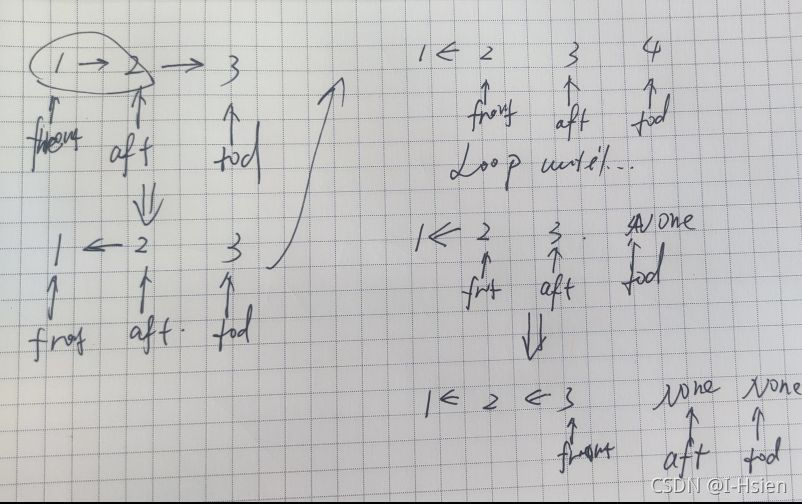 1 → 2 → 3
front aft tod
1 ← 2 3
frot aft. tod
1 ← 2 3 4
front aft tod
Loop until...
1 ← 2 3 . None
frt aft tod
1 ← 2 ← 3 None None
front aft tod
CSDN @I-Hsien